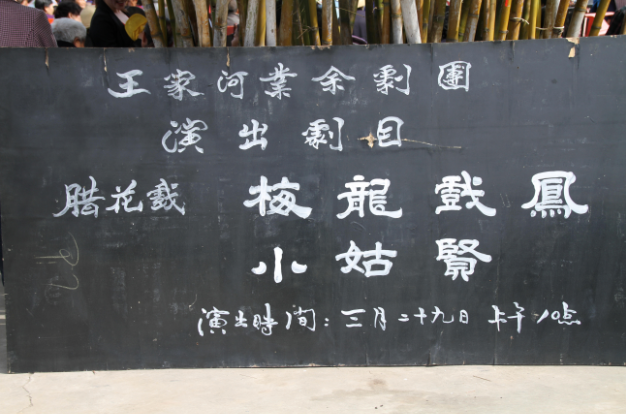 王家河業余劇團
演出劇目
腊花戲 梅龍戲鳳
小姑賢
演出時间：三月二十九日 上午10点